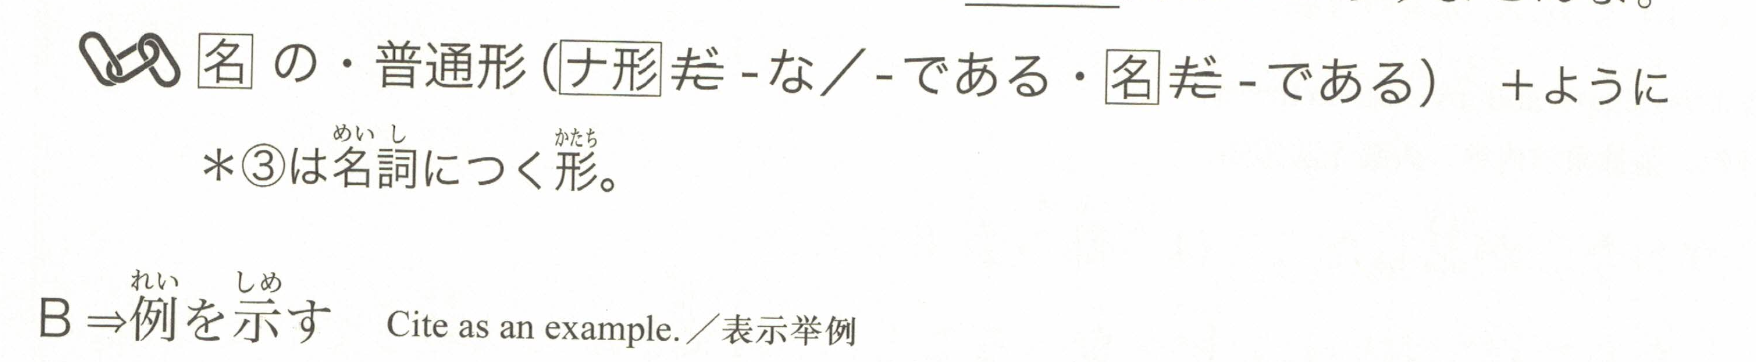 名の・普通形(ナ形だ -な／-である・名だ -である) +ように
めいし かたち
＊③は名詞につく形。
れい しめ
B⇒例を示す Cite as an example.／表示挙例